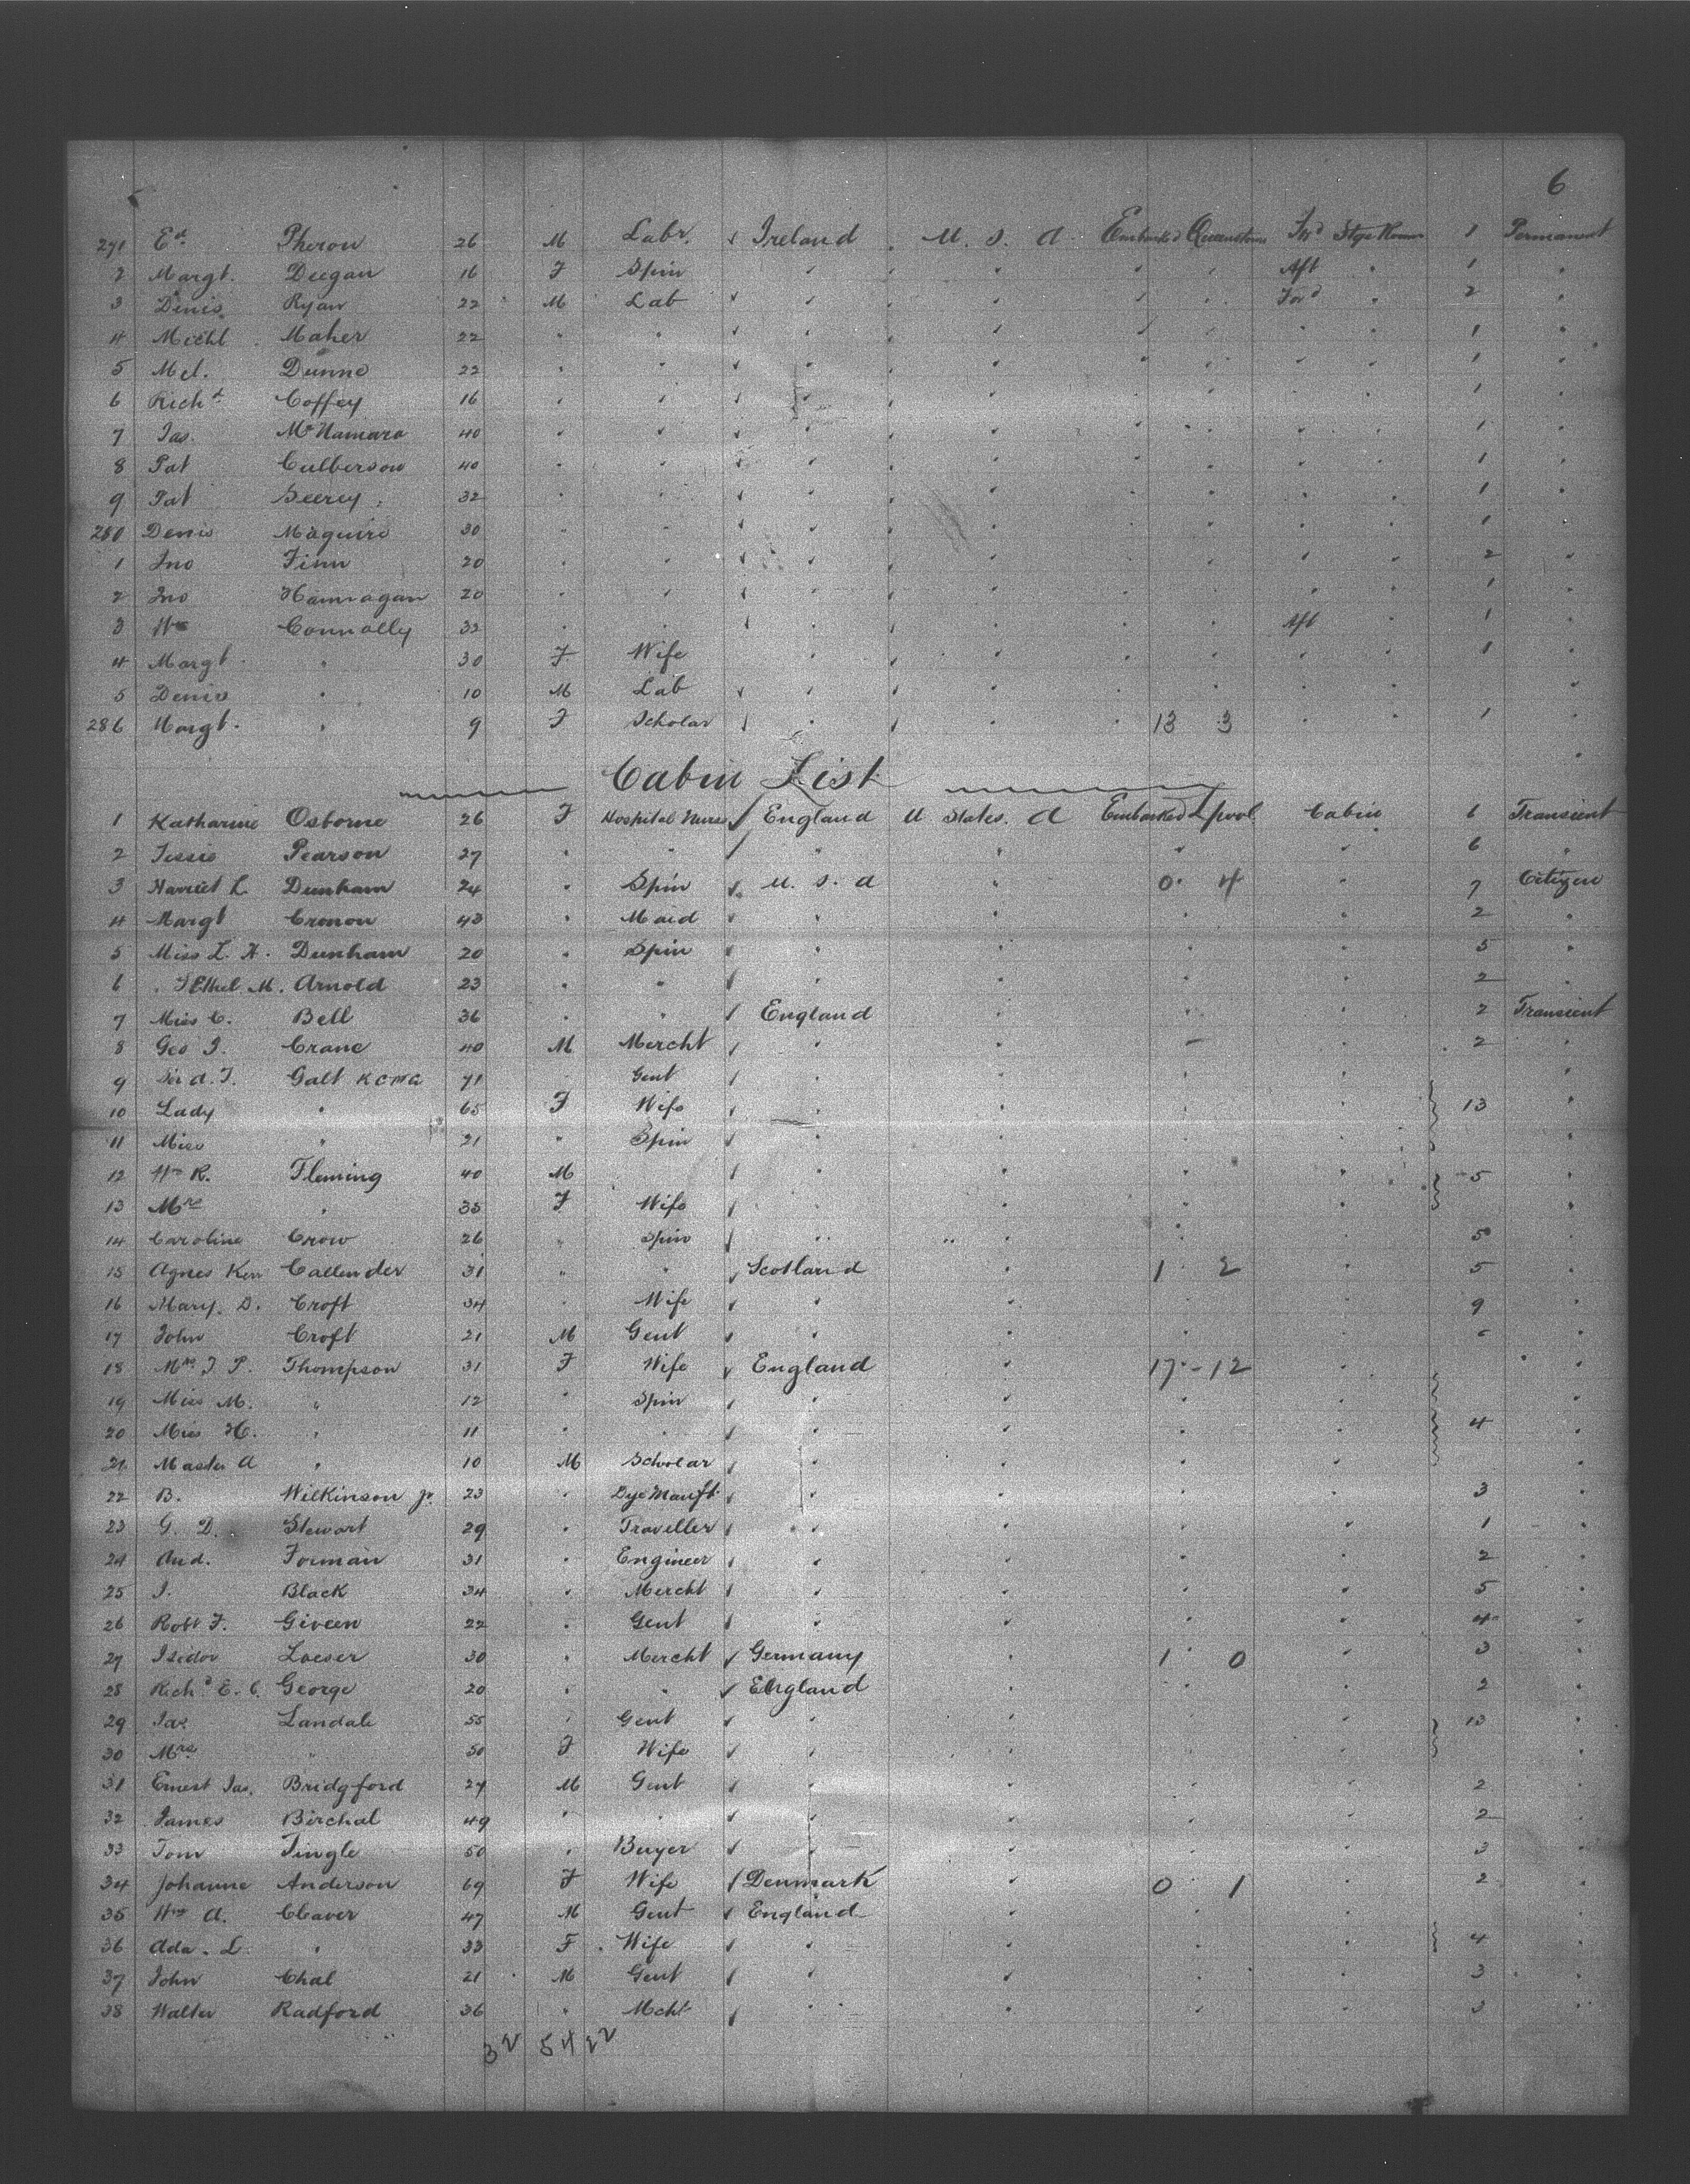 6
271 Ed. Pheron 26 M Labr. Ireland U. S. A Embarked Queenstown Fwd Stge Room 1 Permanent
2 Margt. Deegan 16 F Spin " " " " Aft " 1 "
3 Denis Ryan 22 M Lab " " " " Ford " 2 "
4 Michl Maher 22 " " " " " " " " 1 "
5 Ml. Dunne 22 " " " " " " " " 1 "
6 Richd Coffey 16 " " " " " " 1 "
7 Jas. McNamara 40 " " " " " " " " 1 "
8 Pat Culberson 40 " " " " " " " " 1 "
9 Pat Seerey 32 " " " " " " " " 1 "
280 Denis Maguire 30 " " " " " " " " 1 "
1 Jno Finn 20 " " " " " " " " 2 "
2 Jno Hannagan 20 " " " " " " " " 1 "
3 Wm Connolly 32 " " " " " " Aft 1 "
4 Margt " 30 F Wife " " " " " " 1 "
5 Denis " 10 M Lab " " " " " " "
286 Margt. " 9 F Scholar " " " 13 3 " " 1 "
Cabin List
1 Katharine Osborne 26 F Hospital Nurse England U States. A Embarked Lpool Cabin 6 Transient
2 Jessie Pearson 27 " " " " " " 6 "
3 Harriet L. Dunham 24 " Spin U. S. A " 0 4 " 7 Citizen
4 Margt Cronon 43 " Maid " " " " 2 "
5 Miss L. H. Dunham 20 " Spin " " " " 5 "
6 " Ethel M. Arnold 23 " " " " " 2 "
7 Miss C. Bell 36 " " England " " " 2 Transient
8 Geo J. Crane 40 M Mercht " " " " 2 "
9 Sir A. T. Galt KCMG 71 " Gent " " " " "
10 Lady " 65 F Wife " " " " 13 "
11 Miss " 21 " Spin " " " " "
12 Wm R. Fleming 40 M " " " " 5 "
13 Mrs " 35 F Wife " " " " "
14 Caroline Crow 26 " Spin " " " 5 "
15 Agnes Kerr Callender 31 " " Scotland 1 2 " 5 "
16 Mary. D. Croft 34 " Wife " " " " 9 "
17 John Croft 21 M Gent " " " " "
18 Mrs J. P. Thompson 31 F Wife England " 17 - 12 " "
19 Miss M. " 12 " Spin " " " " "
20 Miss H. " 11 " " " " " " 4 "
21 Master A " 10 M Scholar " " " " "
22 B. Wilkinson Jr. 23 " Dye Manft " " " " 3 "
23 G. D. Stewart 29 " Traveller " " " " 1 "
24 And. Forman 31 " Engineer " " " " 2 "
25 J. Black 34 " Mercht " " " " 5 "
26 Robt F. Giveen 22 " Gent " " " " 4 "
27 Isidor Loeser 30 " Mercht Germany " 1 0 " 3 "
28 Richd E. C. George 20 " " England " " " 2 "
29 Jas. Landale 55 " Gent " " " " 13 "
30 Mrs " 50 F Wife " " " " "
31 Ernest Jas. Bridgford 24 M Gent " " " " 2 "
32 James Birchal 49 " " " " " " 2 "
33 Tom Tingle 50 " Buyer " " " " 3 "
34 Johanne Anderson 69 F Wife Denmark " 0 1 " 2 "
35 Wm A. Cleaver 47 M Gent England " " " "
36 Ada. L. " 33 F. Wife " " " " 4 "
37 John Chal 21 M Gent " " " " 3 "
38 Walter Radford 36 " Mcht " " " " 3 "
32 54 22